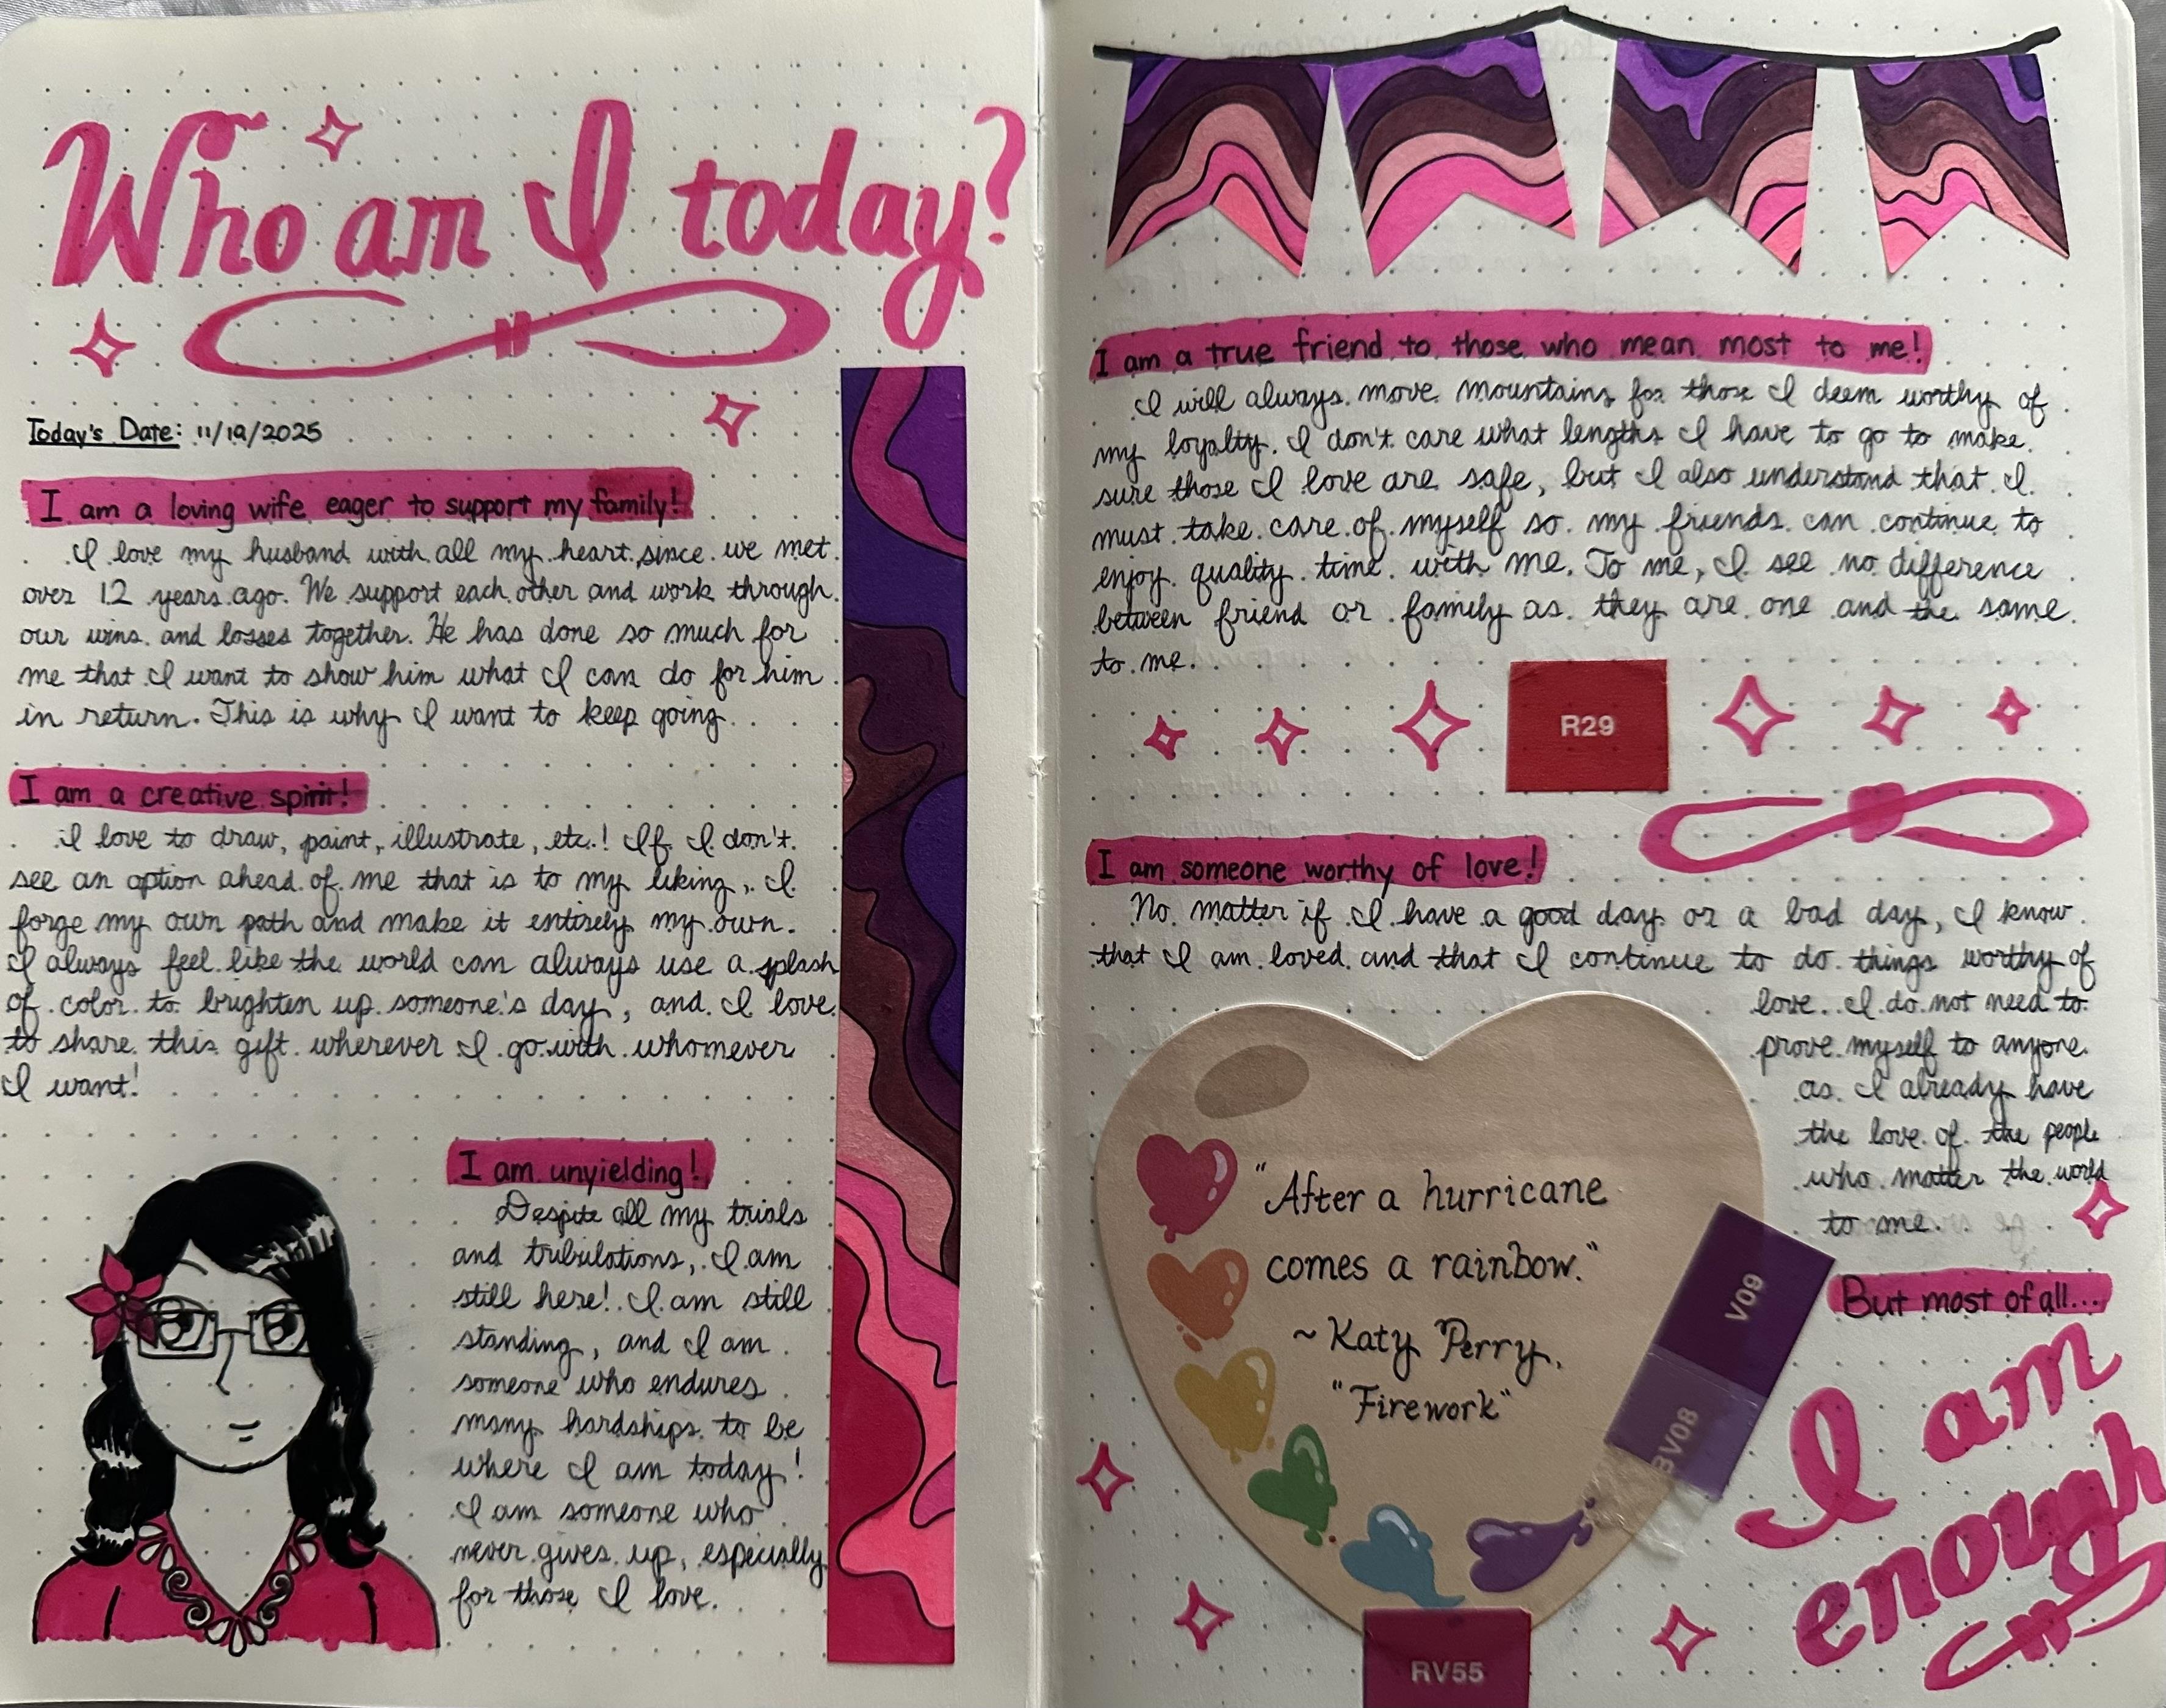 Who am I today?
Today's Date: 11/19/2025
I am a loving wife eager to support my family!
I love my husband with all my heart since we met
over 12 years ago. We support each other and work through
our wins and losses together. He has done so much for
me that I want to show him what I can do for him
in return. This is why I want to keep going.
I am a creative spirit!
I love to draw, paint, illustrate, etc.! If I don't
see an option ahead of me that is to my liking, I
forge my own path and make it entirely my own.
I always feel like the world can always use a splash
of color to brighten up someone's day, and I love
to share this gift wherever I go with whomever
I want!
I am unyielding!
Despite all my trials
and tribulations, I am
still here! I am still
standing, and I am
someone who endures
many hardships to be
where I am today!
I am someone who
never gives up, especially
for those I love.
I am a true friend to those who mean most to me!
I will always move mountains for those I deem worthy of
my loyalty. I don't care what lengths I have to go to make
sure those I love are safe, but I also understand that I
must take care of myself so my friends can continue to
enjoy quality time with me. To me, I see no difference
between friend or family as they are one and the same
to me.
R29
I am someone worthy of love!
No matter if I have a good day or a bad day, I know
that I am loved and that I continue to do things worthy of
love. I do not need to
prove myself to anyone
as I already have
the love of the people
who matter the world
to me.
"After a hurricane
comes a rainbow."
~Katy Perry,
"Firework"
V09
BV08
RV55
But most of all...
I am
enough